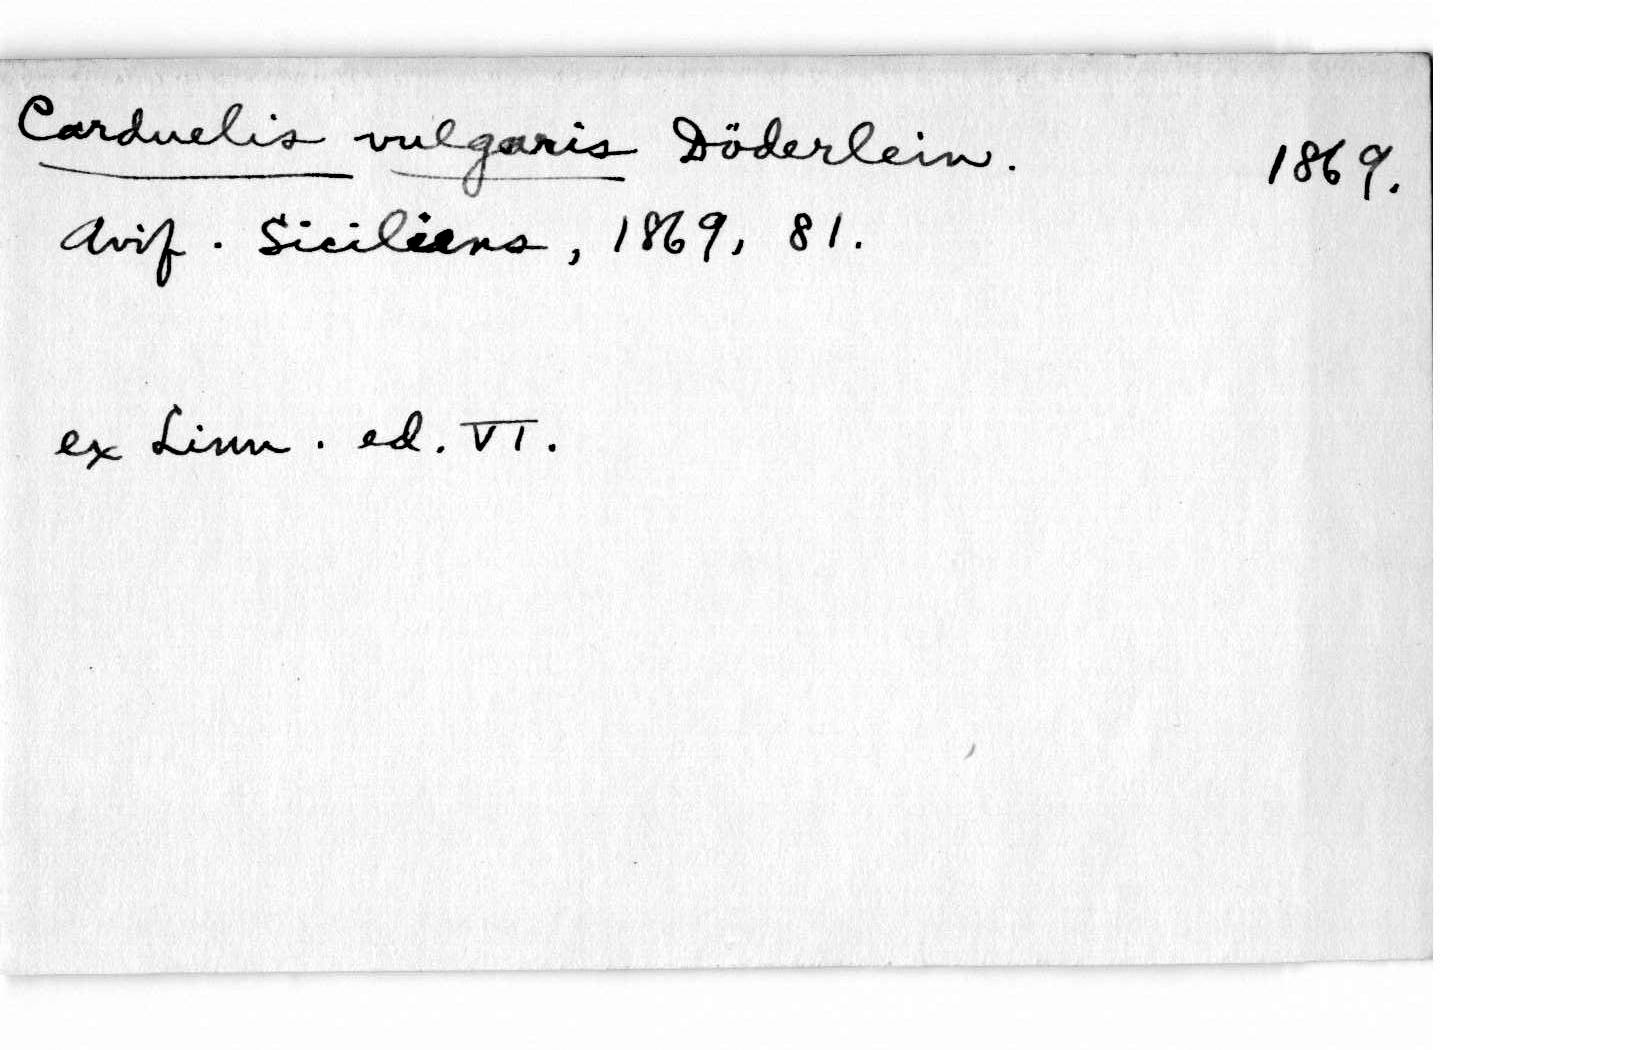 Carduelis vulgaris Döderlein. 1869.
Avif. Siciliens, 1869, 81.
ex Linn. ed. VI.